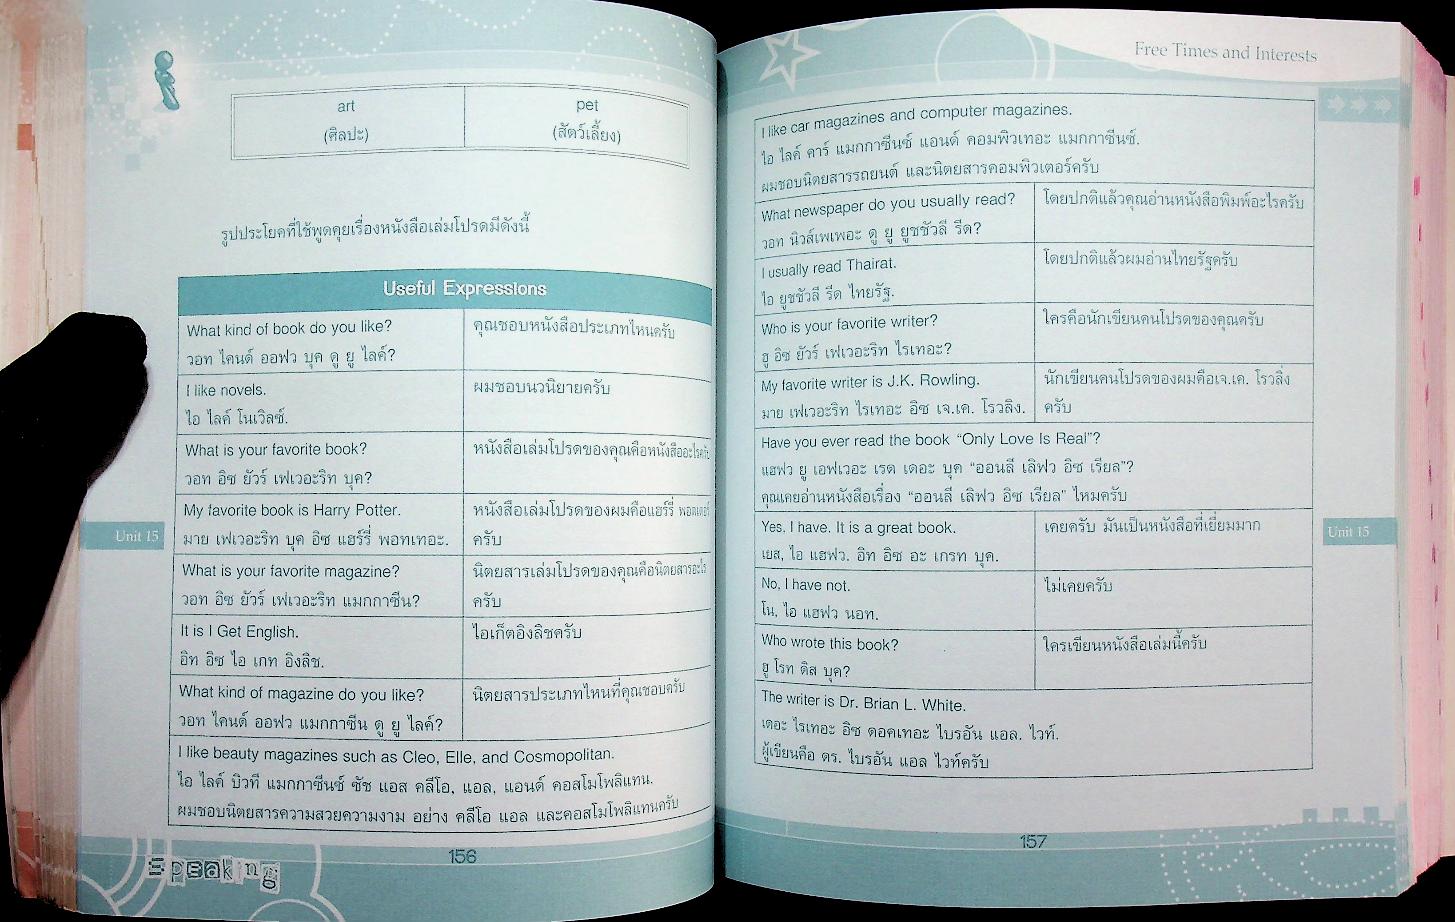 art
(ศิลปะ)
pet
(สัตว์เลี้ยง)
รูปประโยคที่ใช้พูดคุยเรื่องหนังสือเล่มโปรดมีดังนี้
Useful Expressions
What kind of book do you like?
วอท ไคนด์ ออฟว บุค ดู ยู ไลค์?
คุณชอบหนังสือประเภทไหนครับ
I like novels.
ไอ ไลค์ โนเวิลซ์.
ผมชอบนวนิยายครับ
What is your favorite book?
วอท อิซ ยัวร์ เฟเวอะริท บุค?
หนังสือเล่มโปรดของคุณคือหนังสืออะไรครับ
My favorite book is Harry Potter.
มาย เฟเวอะริท บุค อิซ แฮร์รี่ พอทเทอะ.
หนังสือเล่มโปรดของผมคือแฮร์รี่ พอตเตอร์
ครับ
What is your favorite magazine?
วอท อิซ ยัวร์ เฟเวอะริท แมกกาซีน?
นิตยสารเล่มโปรดของคุณคือนิตยสารอะไร
ครับ
It is I Get English.
อิท อิซ ไอ เกท อิงลิช.
ไอเก็ตอิงลิชครับ
What kind of magazine do you like?
วอท ไคนด์ ออฟว แมกกาซีน ดู ยู ไลค์?
นิตยสารประเภทไหนที่คุณชอบครับ
I like beauty magazines such as Cleo, Elle, and Cosmopolitan.
ไอ ไลค์ บิวที แมกกาซีนซ์ ซัช แอส คลีโอ, แอล, แอนด์ คอสโมโพลิแทน.
ผมชอบนิตยสารความสวยความงาม อย่าง คลีโอ แอล และคอสโมโพลิแทนครับ
Unit 15
Speaking
156
Free Times and Interests
I like car magazines and computer magazines.
ไอ ไลค์ คาร์ แมกกาซีนซ์ แอนด์ คอมพิวเทอะ แมกกาซีนซ์.
ผมชอบนิตยสารรถยนต์ และนิตยสารคอมพิวเตอร์ครับ
What newspaper do you usually read?
วอท นิวส์เพเพอะ ดู ยู ยูชชัวลี รีด?
โดยปกติแล้วคุณอ่านหนังสือพิมพ์อะไรครับ
I usually read Thairat.
ไอ ยูชชัวลี รีด ไทยรัฐ.
โดยปกติแล้วผมอ่านไทยรัฐครับ
Who is your favorite writer?
ฮู อิซ ยัวร์ เฟเวอะริท ไรเทอะ?
ใครคือนักเขียนคนโปรดของคุณครับ
My favorite writer is J.K. Rowling.
มาย เฟเวอะริท ไรเทอะ อิซ เจ.เค. โรวลิง.
นักเขียนคนโปรดของผมคือเจ.เค. โรวลิ่ง
ครับ
Have you ever read the book “Only Love Is Real”?
แฮฟว ยู เอฟเวอะ เรด เดอะ บุค “ออนลี เลิฟว อิซ เรียล”?
คุณเคยอ่านหนังสือเรื่อง “ออนลี เลิฟว อิซ เรียล” ไหมครับ
Yes, I have. It is a great book.
เยส, ไอ แฮฟว. อิท อิซ อะ เกรท บุค.
เคยครับ มันเป็นหนังสือที่เยี่ยมมาก
No, I have not.
โน, ไอ แฮฟว นอท.
ไม่เคยครับ
Who wrote this book?
ฮู โรท ดิส บุค?
ใครเขียนหนังสือเล่มนี้ครับ
The writer is Dr. Brian L. White.
เดอะ ไรเทอะ อิซ ดอคเทอะ ไบรอัน แอล. ไวท์.
ผู้เขียนคือ ดร. ไบรอัน แอล ไวท์ครับ
Unit 15
157